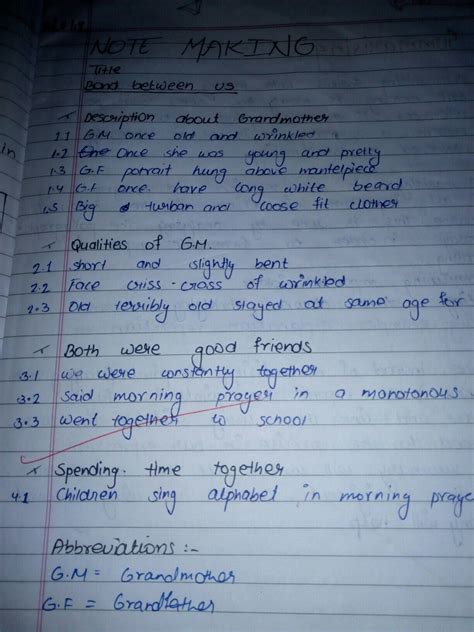 NOTE MAKING
Title
Bond between us
x Description about Grandmother
1.1 G.M once old and wrinkled
1.2 Once she was young and pretty
1.3 G.F potrait hung above mantelpiece
1.4 G.F once have long white beard
1.5 Big turban and loose fit clother
x Qualities of G.M.
2.1 short and slightly bent
2.2 Face criss-cross of wrinkled
2.3 Old terribly old stayed at same age for
x Both were good friends
3.1 we were constantly together
3.2 Said morning prayer in a monotonous
3.3 went together to school
x Spending time together
4.1 Children sing alphabet in morning praye
Abbreviations :-
G.M = Grandmother
G.F = Grandfather
in